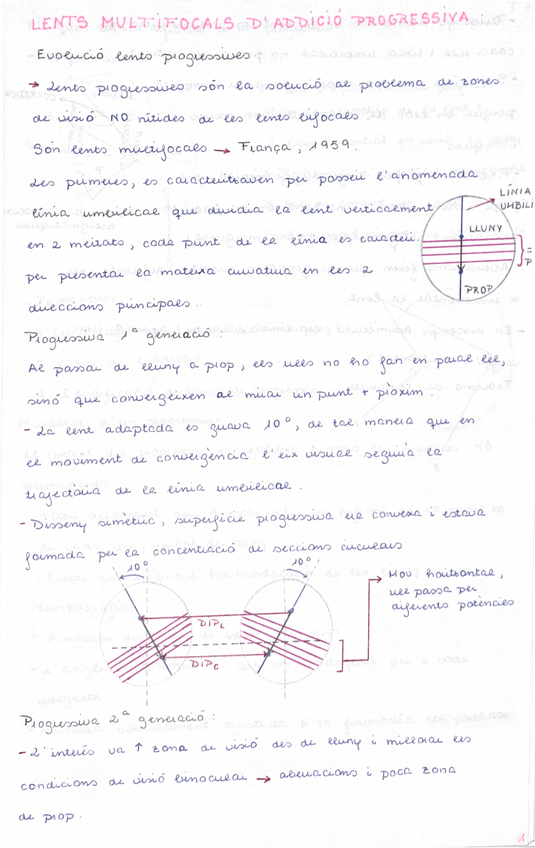 LENTS MULTIFOCALS D'ADDICIÓ PROGRESSIVA
Evolució lents progressives:
→ Lents progressives són la solució al problema de zones
de visió NO nítides de les lents bifocals.
Són lents multifocals → França, 1959.
Les primeres, es caracteritzaven per posseir l'anomenada
línia umbilical que dividia la lent verticalment
en 2 meitats, cada punt de la línia es caracteri..
per presentar la mateixa curvatura en les 2
direccions principals.
LÍNIA
UMBILI
LLUNY
PROP
Progressiva 1ª generació:
Al passar de lluny a prop, els ulls no ho fan en paral·lel,
sinó que convergeixen al mirar un punt + pròxim.
- La lent adaptada es girava 10º, de tal manera que en
el moviment de convergència l'eix visual seguia la
trajectòria de la línia umbilical.
- Disseny simètric, superfície progressiva era convexa i estava
formada per la concentració de seccions circulars
10º
10º
DIPL
DIPc
Mov. horitzontal,
ull passa per
diferents potències
Progressiva 2ª generació:
- L'interés va ↑ zona de visió des de lluny i millorar les
condicions de visió binocular → aberracions i poca zona
de prop.
1